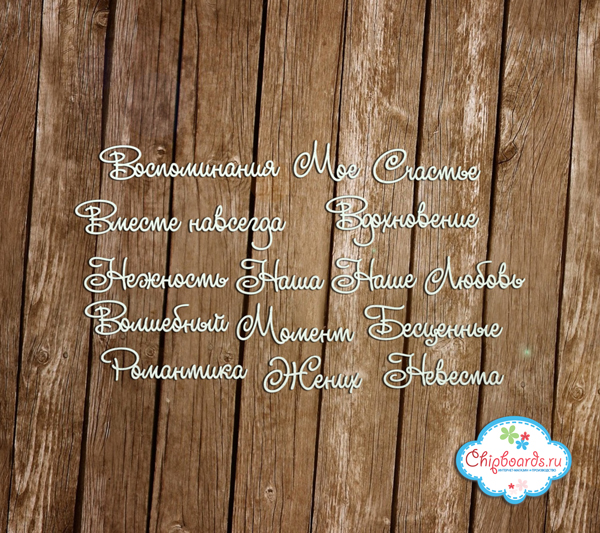 Воспоминания Мое Счастье
Вместе навсегда Вдохновение
Нежность Наша Наше Любовь
Волшебный Момент Бесценные
Романтика Жених Невеста
Chipboards.ru
ИНТЕРНЕТ-МАГАЗИН И ПРОИЗВОДСТВО